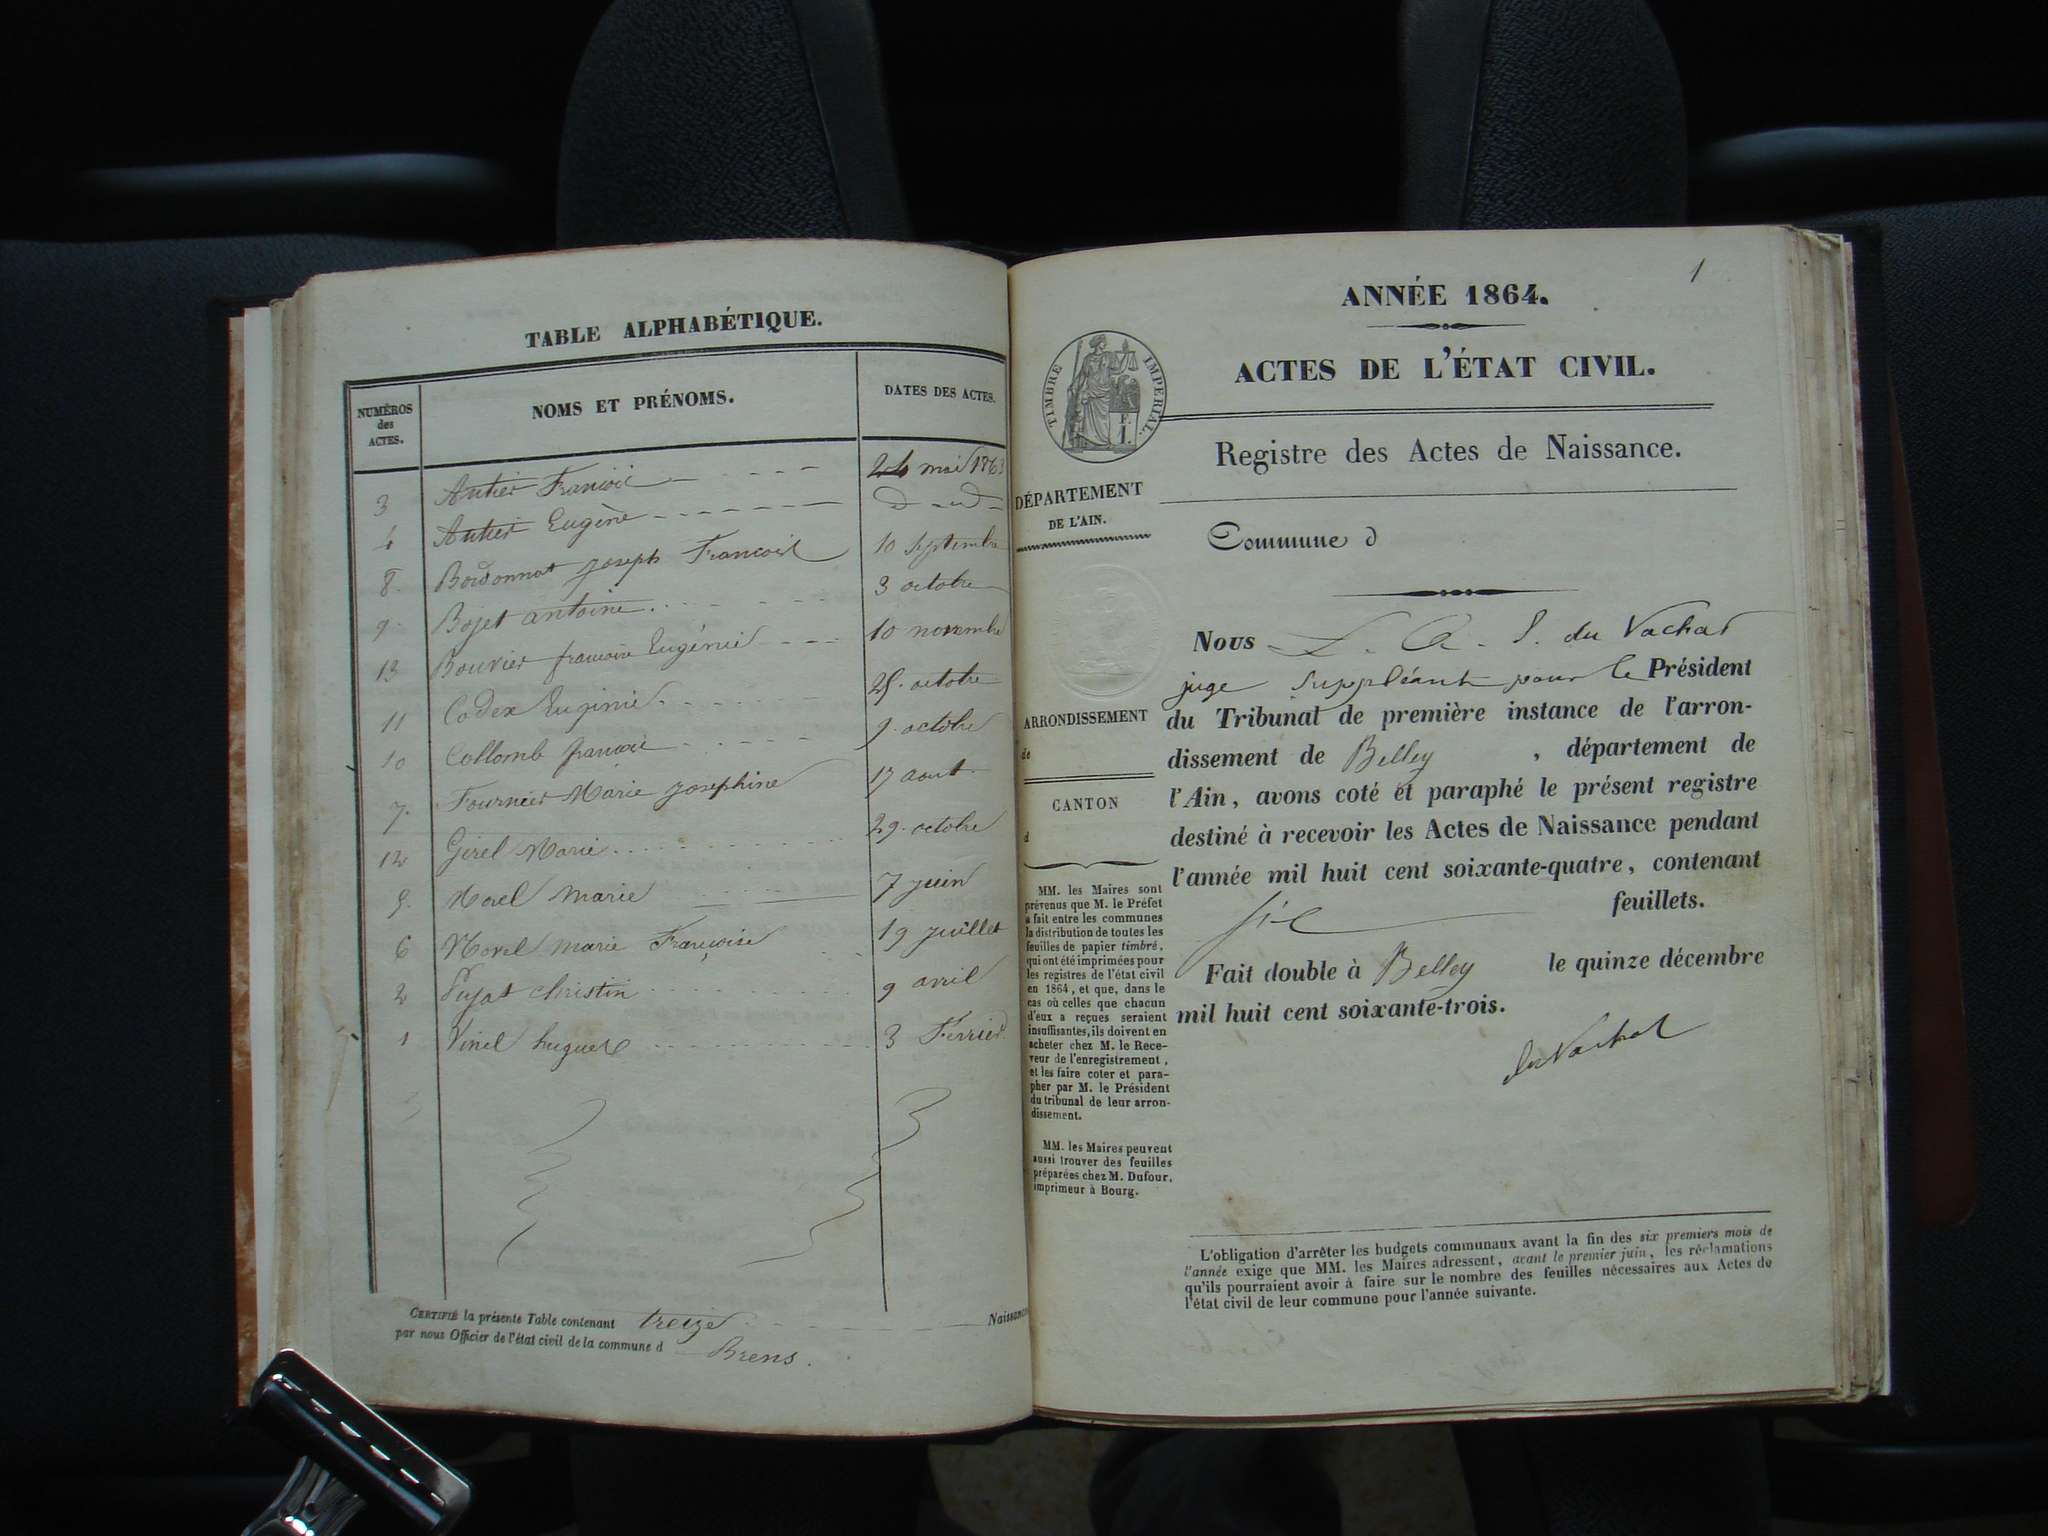 TABLE ALPHABÉTIQUE.
NUMÉROS des ACTES. NOMS ET PRÉNOMS. DATES DES ACTES.
3 Antier François 24 mai 1863
4 Antier Eugène d - d
8. Bordonnat joseph François 10 Septembre
9. Bojet antoine 3 octobre
13 Bouvier francoise Eugénie 10 novembre
11 Codex Eugénie 25. octobre
10 Collomb françois 9. octobre
7. Fournier Marie josephine 17 aout
12 Girel Marie 29. octobre
5. Morel marie 7 juin
6 Morel marie Françoise 19 juillet
2 Pujat christin 9 avril
1 Vinel hugues 3 Fevrier
CERTIFIÉ la présente Table contenant treize Naissances
par nous Officier de l'état civil de la commune d Brens.
1
ANNÉE 1864.
ACTES DE L'ÉTAT CIVIL.
TIMBRE IMPÉRIAL.
Registre des Actes de Naissance.
DÉPARTEMENT
DE L'AIN.
Commune d
ARRONDISSEMENT
de
CANTON
d
MM. les Maires sont
prévenus que M. le Préfet
a fait entre les communes
la distribution de toutes les
feuilles de papier timbré,
qui ont été imprimées pour
les registres de l'état civil
en 1864, et que, dans le
cas où celles que chacun
d'eux a reçues seraient
insuffisantes, ils doivent en
acheter chez M. le Rece-
veur de l'enregistrement,
et les faire coter et para-
pher par M. le Président
du tribunal de leur arron-
dissement.
MM. les Maires peuvent
aussi trouver des feuilles
préparées chez M. Dufour,
imprimeur à Bourg.
Nous L. A. J. du Vachat
juge Suppléant pour le Président
du Tribunal de première instance de l'arron-
dissement de Belley, département de
l'Ain, avons coté et paraphé le présent registre
destiné à recevoir les Actes de Naissance pendant
l'année mil huit cent soixante-quatre, contenant
six feuillets.
Fait double à Belley le quinze décembre
mil huit cent soixante-trois.
du Vachat
L'obligation d'arrêter les budgets communaux avant la fin des six premiers mois de
l'année exige que MM. les Maires adressent, avant le premier juin, les réclamations
qu'ils pourraient avoir à faire sur le nombre des feuilles nécessaires aux Actes de
l'état civil de leur commune pour l'année suivante.